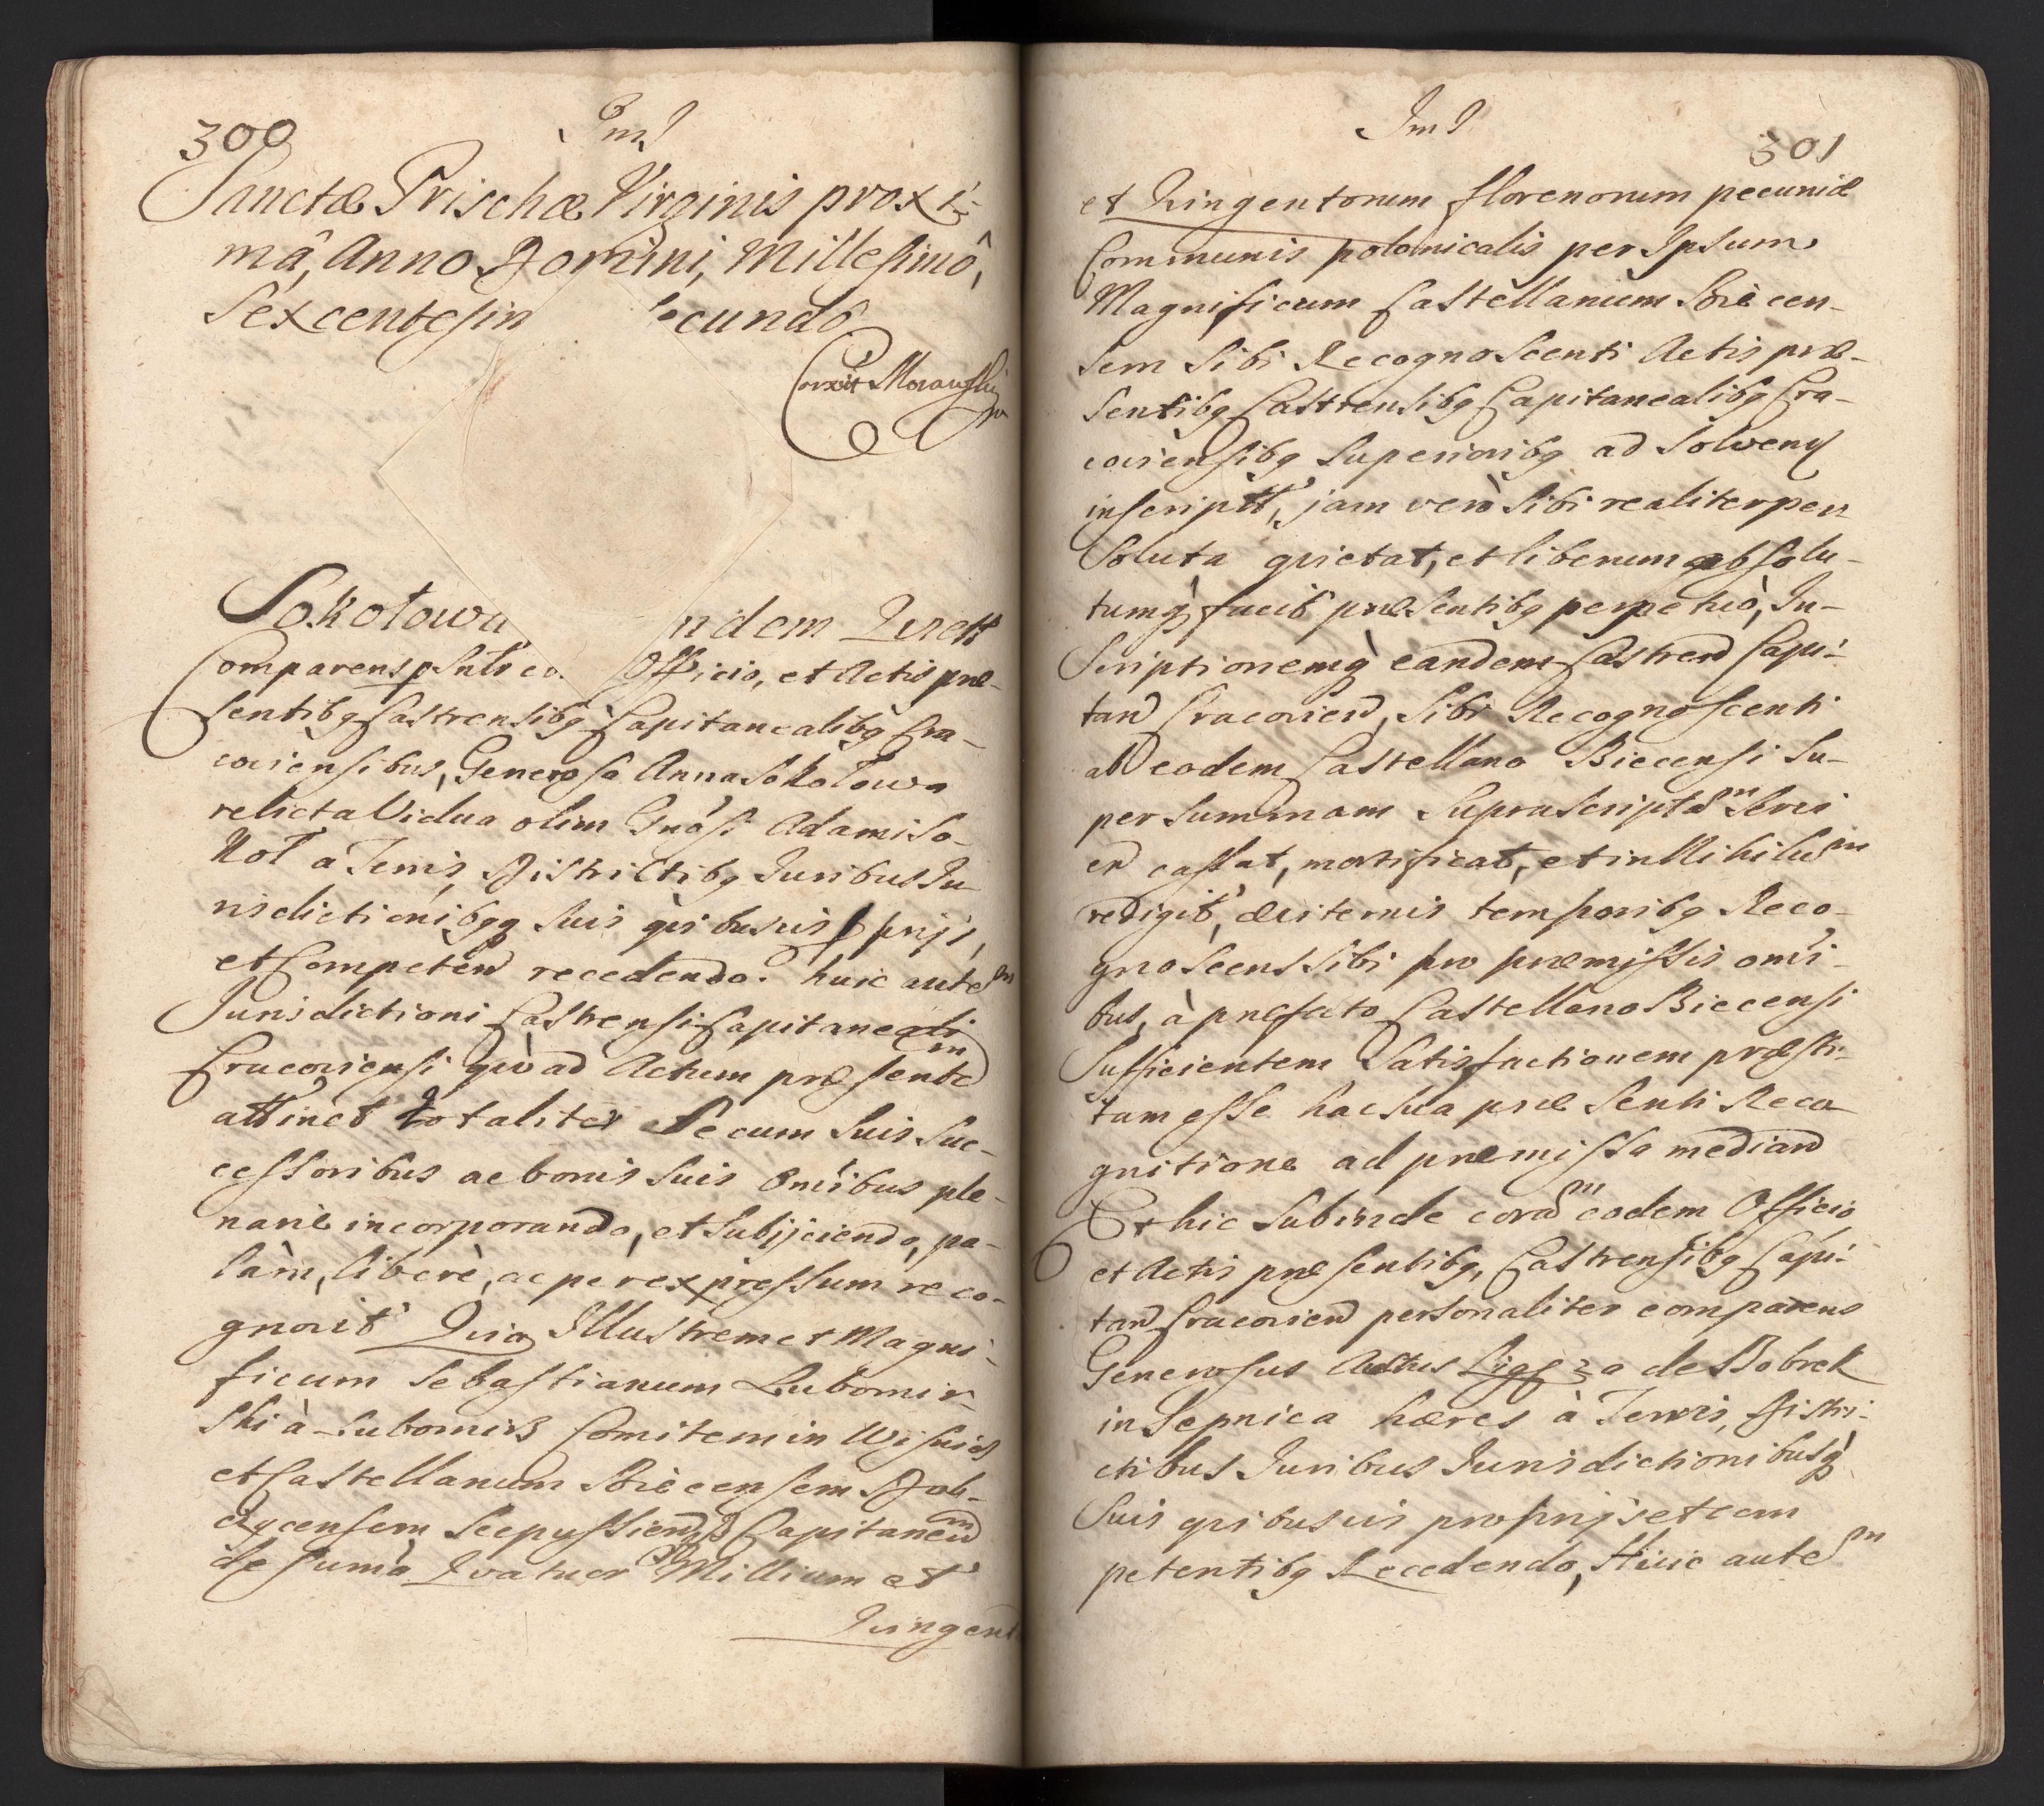 300
ImJ
Sanctæ Prischæ Virginis proxi-
mâ, Anno Domini, Millesimô,
Sexcentesim ecundô
Correxit Morawski
Sokołowa ndem Quiett
Comparens psnlr co. Officio, et Actis præ-
sentibq Castrensibq Capitanealibq Cra-
coviensibus, Generosa Anna Sokołowa
relicta Vidua olim Gnosi Adami So-
koł a Terris, Districtibq Iuribus Iu-
risdictionibqq suis qvibusvis pprijs,
et Competen recedendo. huic autem
Jurisdictioni Castrensi Capitaneali
Cracoviensi qvò ad Actum præsentem
attinet totaliter Se cum suis suc-
cessoribus ac bonis suis omibus ple-
nariè incorporando, et subijciendo, pa-
làm, liberè, ac per expressum reco-
gnovit Quia Illustrem et Magni-
ficum Sebastianum Lubomir-
ski à Lubomirz Comitem in Wisnicz
et Castellanum Biecensem Dob-
czycensem Scepussiensq Capitaneum
de sumâ Qvatuor Millium et
Qvingent
ImJ
301
et Qvingentorum florenorum pecuniæ
Communis polonicalis per Ipsum
Magnificum Castellanum Biecen-
sem sibi Recognoscenti Actis præ-
sentibq Castrensibq Capitanealibq Cra-
coviensibq Superioribq ad Solvend
inscriptt, jam verò sibi realiter per
soluta qvietat, et liberum absolu-
tumq facit præsentibq perpetuò, In-
scriptionemq eandem Castren Capi-
tan Cracovien, sibi Recognoscenti
ab eodem Castellano Biecensi su-
per summam supra scriptam servi
en cassat, mortificat, et in Nihilum
redigit, æviternis temporibq Reco-
gnoscens sibi pro præmissis omi-
bus, à præfato Castellano Biecensi
Sufficientem Satisfactionem præsti-
tam esse hac sua præsenti Reco-
gnitione ad præmissa median
Et hic subinde coram eodem Officio,
et Actis præsentibq, Castrensibq Capi-
tan Cracovien personaliter comparens
Generosus Actus Ligęza de Bobrek
in Sepnica hæres à Terris, Distri-
ctibus Iuribus Iurisdictionibusq
Suis qvibusvis proprijs et com
petentibq Recedendo, Huic autem